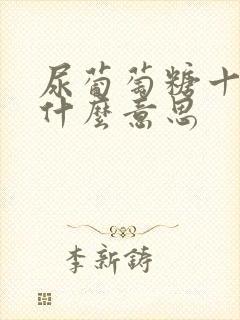 尿葡萄糖十
什麼意思
李新鑄